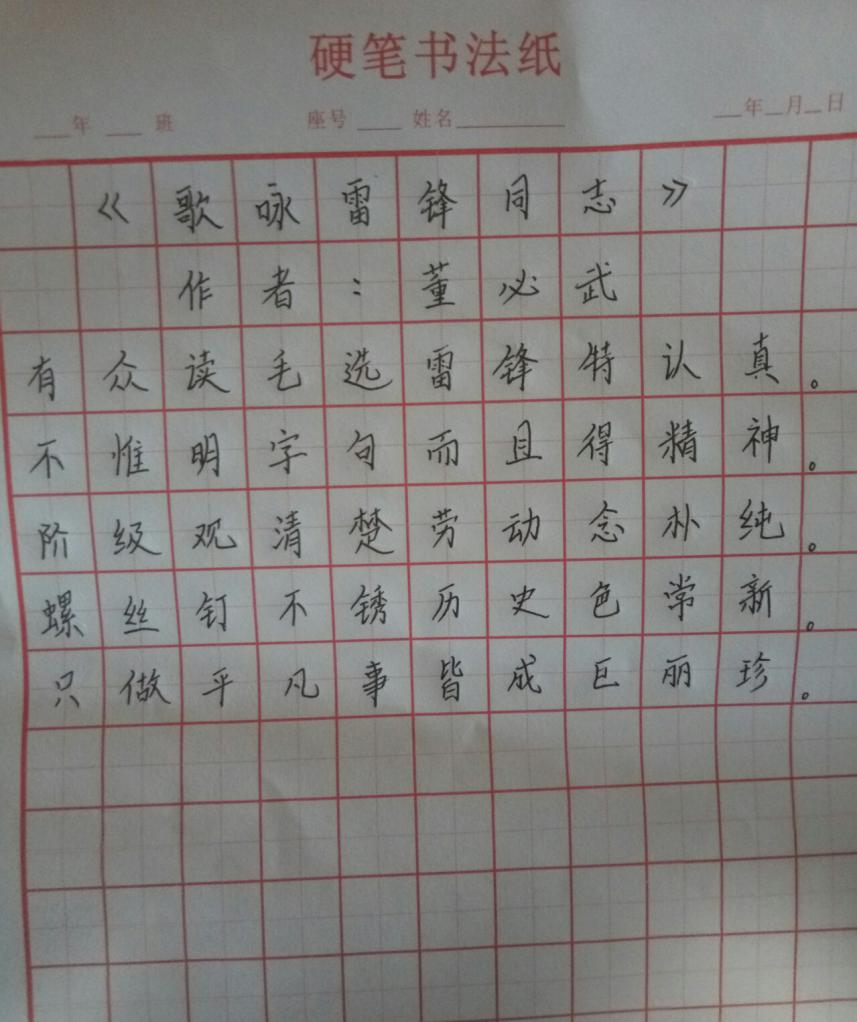 硬笔书法纸
年 班 座号 姓名 年 月 日
《歌咏雷锋同志》
作者：董必武
有众读毛选雷锋特认真。
不惟明字句而且得精神。
阶级观清楚劳动念朴纯。
螺丝钉不锈历史色常新。
只做平凡事皆成巨丽珍。